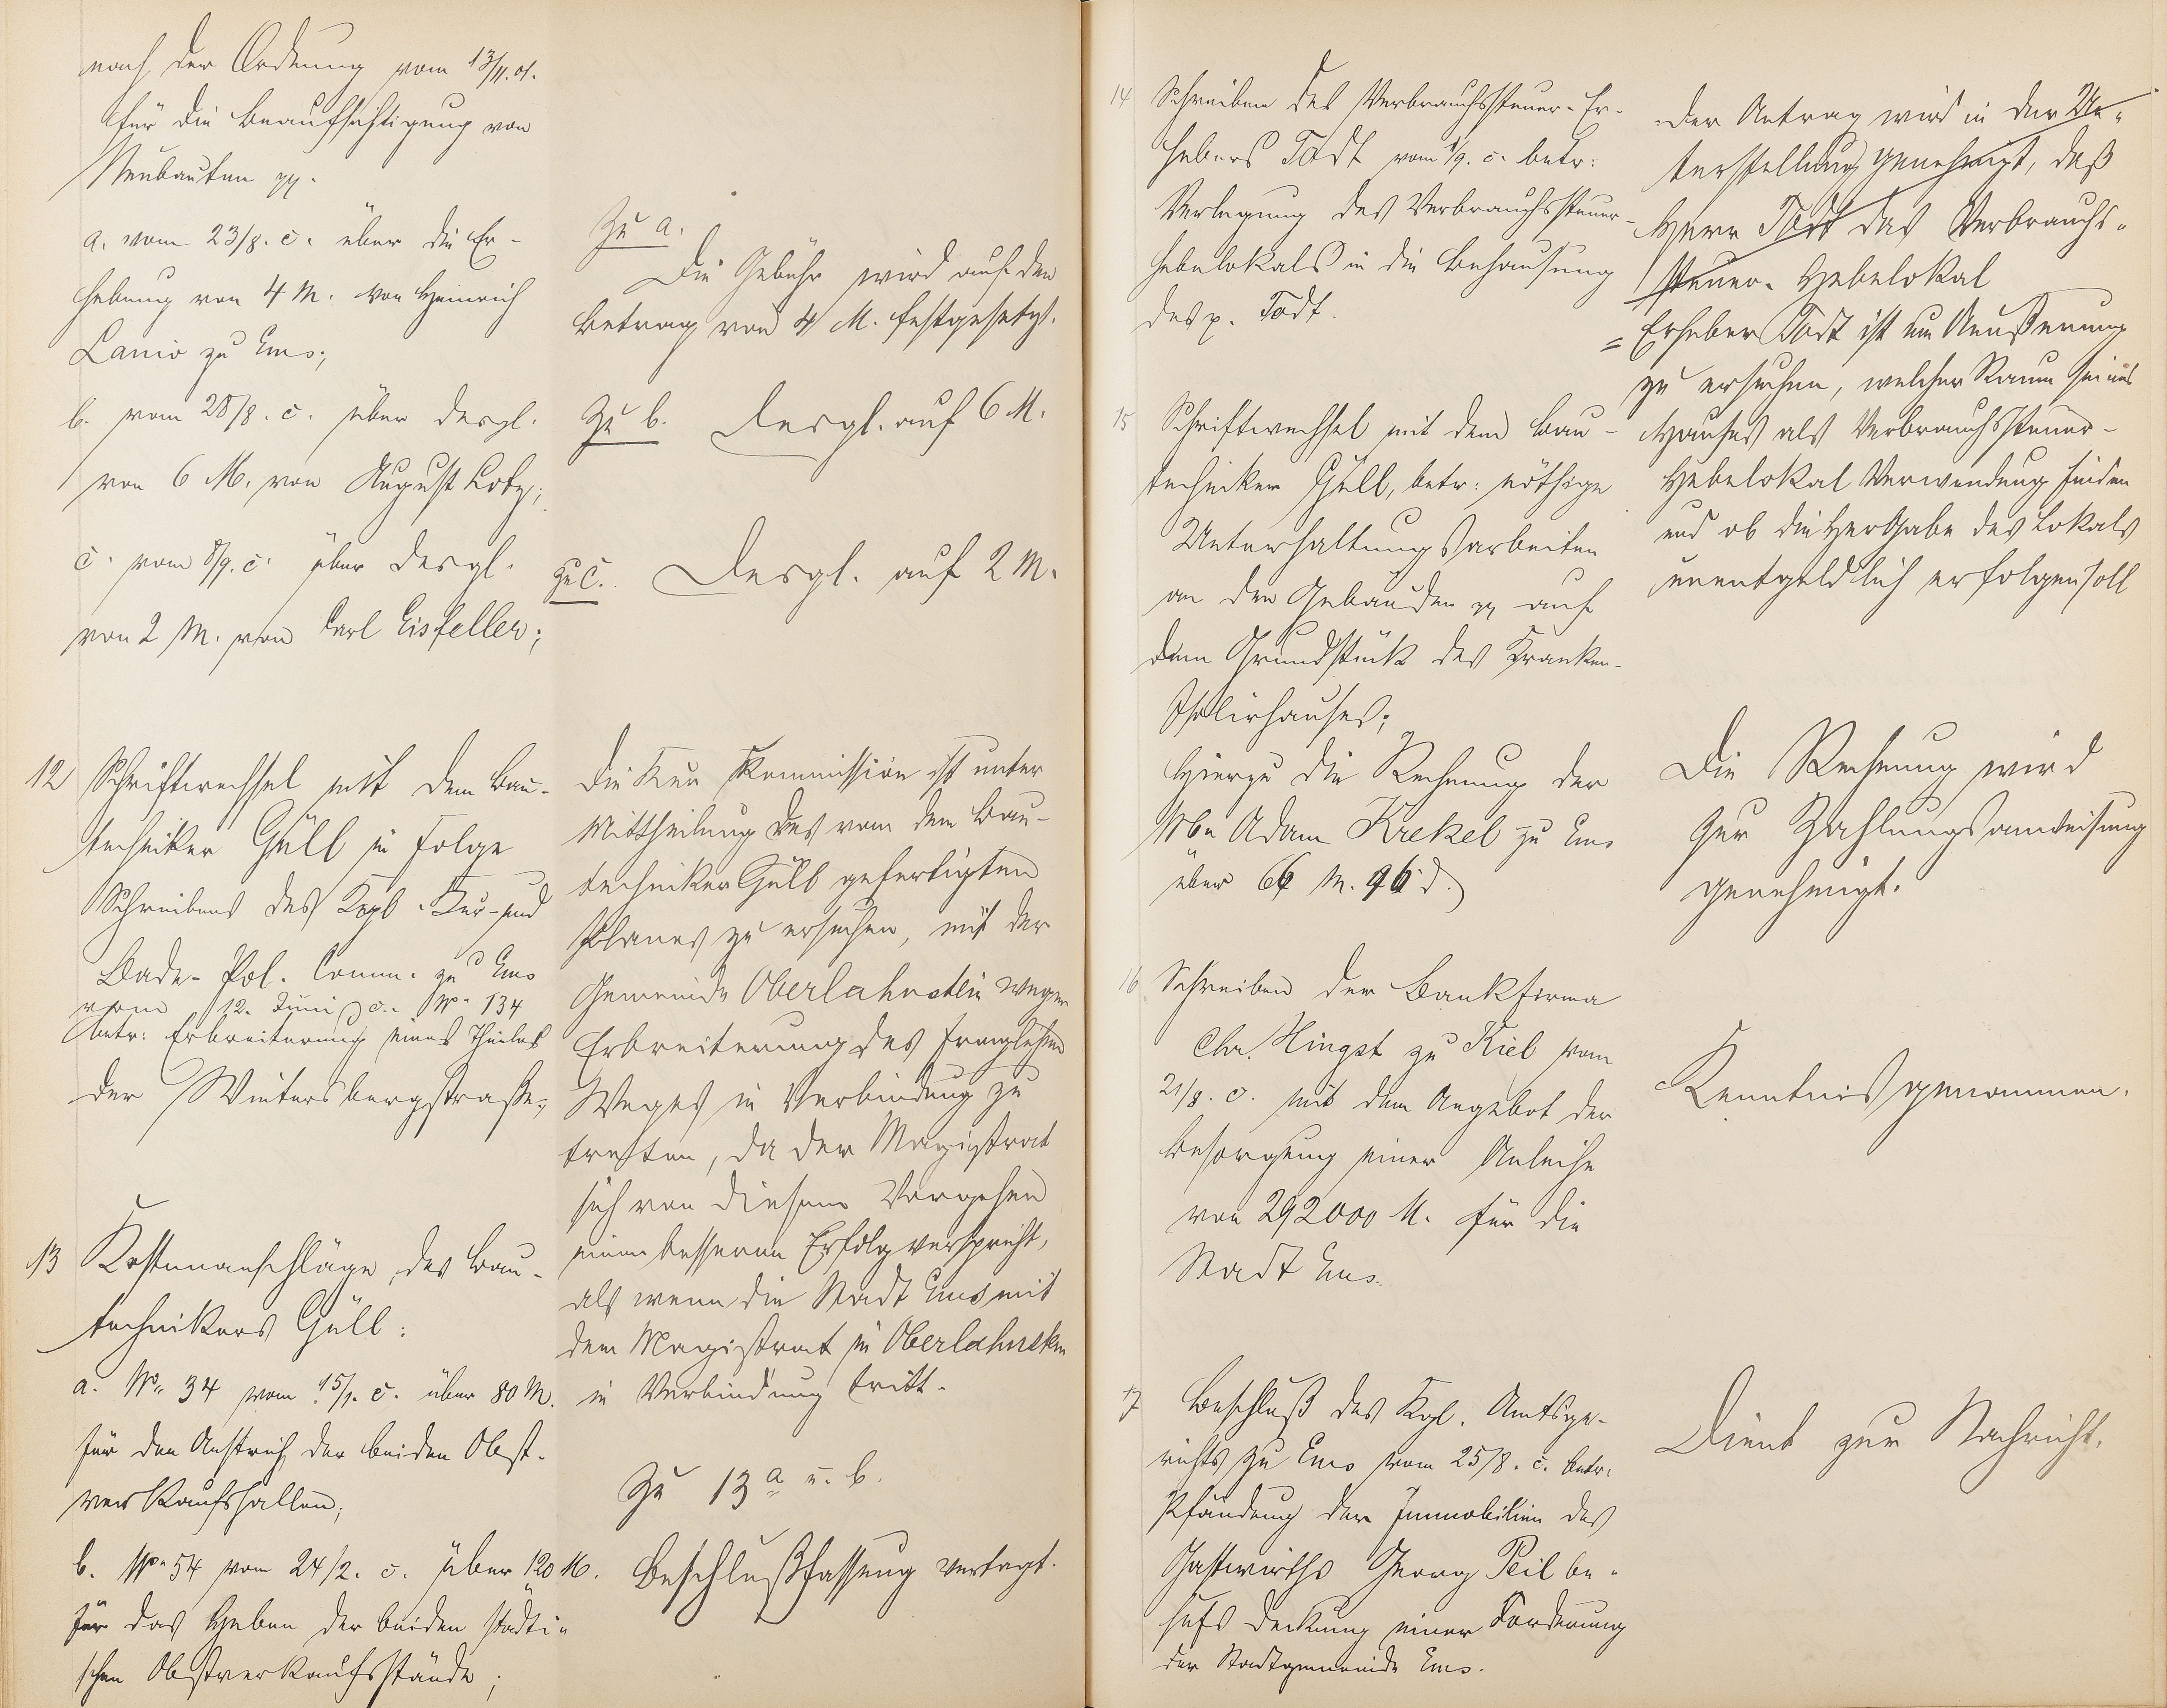 nach der Ordnung vom 13/11. 01.
für die Beaufsichtigung von
Neubauten pp.
a. vom 23/8. c. über die Er-
hebung von 4 M. von Heinrich
Lanio zu Ems;
b. vom 28/8. c. über desgl.
von 6 M. von August Lotz;
c. vom 8/9. c. über desgl.
von 2 M. von Carl Eisfeller;
12 Schriftwechsel mit dem Bau-
techniker Güll in Folge
Schreibens des Kgl. Kur- und
Bade-Pol. Comm. zu Ems
vom 12. Juni c. No 134
betr: Erbreiterung eines Theiles
der Wintersbergstraße;
13 Kostenanschläge des Bau-
technikers Güll:
a. No 34 vom 15/1. c. über 80 M.
für den Anstrich der beiden Obst-
verkaufshallen;
b. No 54 vom 24/2. c. über 120 M.
für das Heben der beiden städti-
schen Obstverkaufsstände;
Zu a.
Die Gebühr wird auf den
Betrag von 4 M. festgesetzt.
Zu b. Desgl. auf 6 M.
Zu c. Desgl. auf 2 M.
Die Kur Kommission ist unter
Mittheilung des von dem Bau-
techniker Güll gefertigten
Planes zu ersuchen, mit der
Gemeinde Oberlahnstein wegen
Erbreiterung des fraglichen
Weges in Verbindung zu
tretten, da der Magistrat
sich von diesem Vorgehen
einen besseren Erfolg verspricht,
als wenn die Stadt Ems mit
dem Magistrat in Oberlahnstein
in Verbindung tritt.
Zu 13 a u. b.
Beschlußfassung vertagt.
14 Schreiben des Verbrauchssteuer-Er-
hebers Todt vom 1/9. c. betr:
Verlegung des Verbrauchssteuer-
hebelokals in die Behausung
des p. Todt.
15 Schriftwechsel mit dem Bau-
techniker Güll, betr: nöthige
Unterhaltungsarbeiten
an den Gebäuden pp auf
dem Grundstück des Kranken-
Isolirhauses;
Hierzu die Rechnung der
Wwe Adam Krekel zu Ems
über 66 M. 96 d.
16 Schreiben der Bankfirma
Chr. Hingst zu Kiel vom
21/8. c. mit dem Angebot der
Besorgung einer Anleihe
von 292000 M. für die
Stadt Ems.
17 Beschluß des Kgl. Amtsge-
richts zu Ems vom 25/8. c. betr:
Pfändung der Immobilien des
Gastwirths Georg Peil be-
hufs Deckung einer Forderung
der Stadtgemeinde Ems.
Der Antrag wird in der Un-
terstellung genehmigt, daß
Herr Todt das Verbrauchs-
steuer-Hebelokal
= Erheber Todt ist um Aeußerung
zu ersuchen, welcher Raum seines
Hauses als Verbrauchssteuer-
Hebelokal Verwendung finden
und ob die Hergabe des Lokals
unentgeldlich erfolgen soll
Die Rechnung wird
zur Zahlungsanweisung
genehmigt.
Kenntnis genommen.
Dient zur Nachricht.